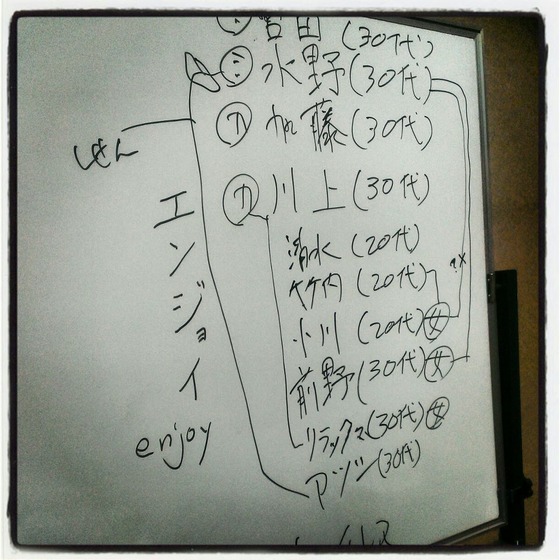 宮田 (30代)
水野 (30代)
加藤 (30代)
川上 (30代)
清水 (20代)
竹内 (20代)
小川 (20代) 女
前野 (30代) 女
リラックマ (30代) 女
(30代)
しせん
エンジョイ
enjoy